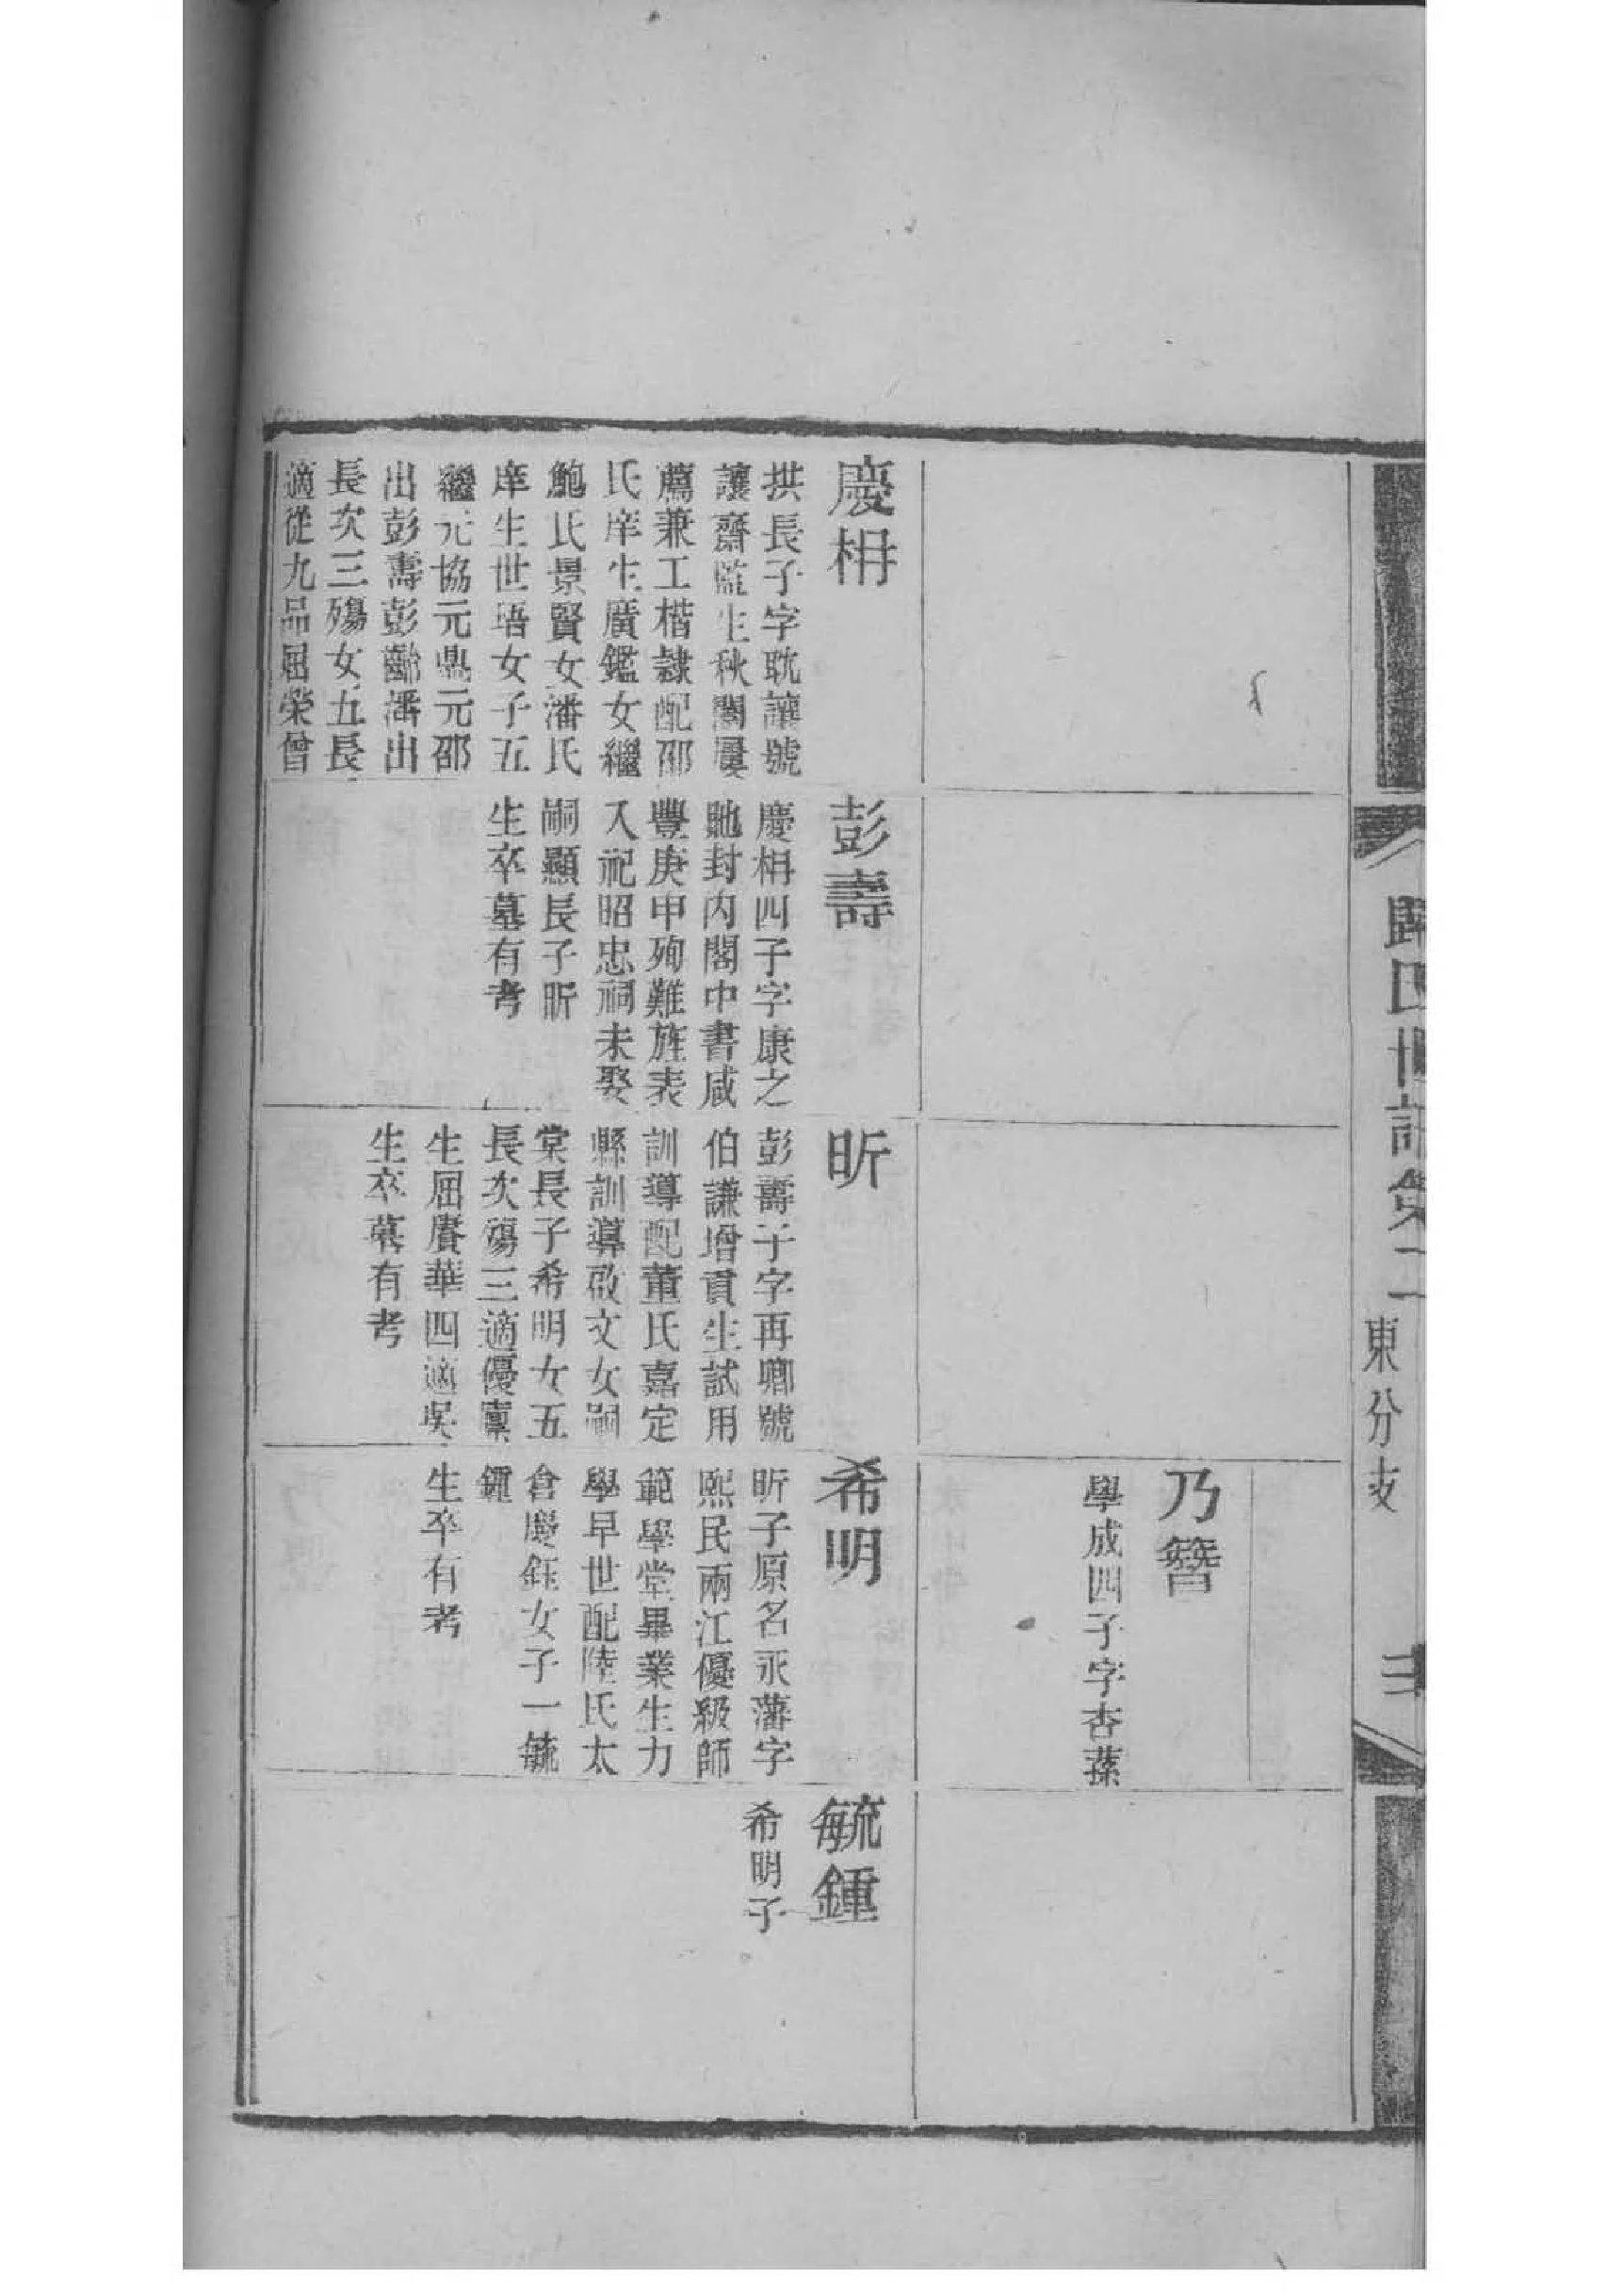 歸氏世譜第二
東分支
乃簪
學成四子字杏蓀
慶枏
拱長子字耽讓號
讓齋監生秋闈屢
薦兼工楷隸配邵
氏庠生廣鑑女繼
鮑氏景賢女潘氏
庠生世珸女子五
繼元協元鼎元邵
出彭壽彭齡潘出
長次三殤女五長
適從九品屈榮曾
彭壽
慶枏四子字康之
貤封内閣中書咸
豐庚申殉難旌表
入祀昭忠祠未娶
嗣顯長子昕
生卒墓有考
昕
彭壽子字再卿號
伯謙增貢生試用
訓導配董氏嘉定
縣訓導啟文女嗣
棠長子希明女五
長次殤三適優廩
生屈賡華四適吳
生卒墓有考
希明
昕子原名永藩字
熙民兩江優級師
範學堂畢業生力
學早世配陸氏太
倉慶鈺女子一毓
鍾
生卒有考
毓鍾
希明子